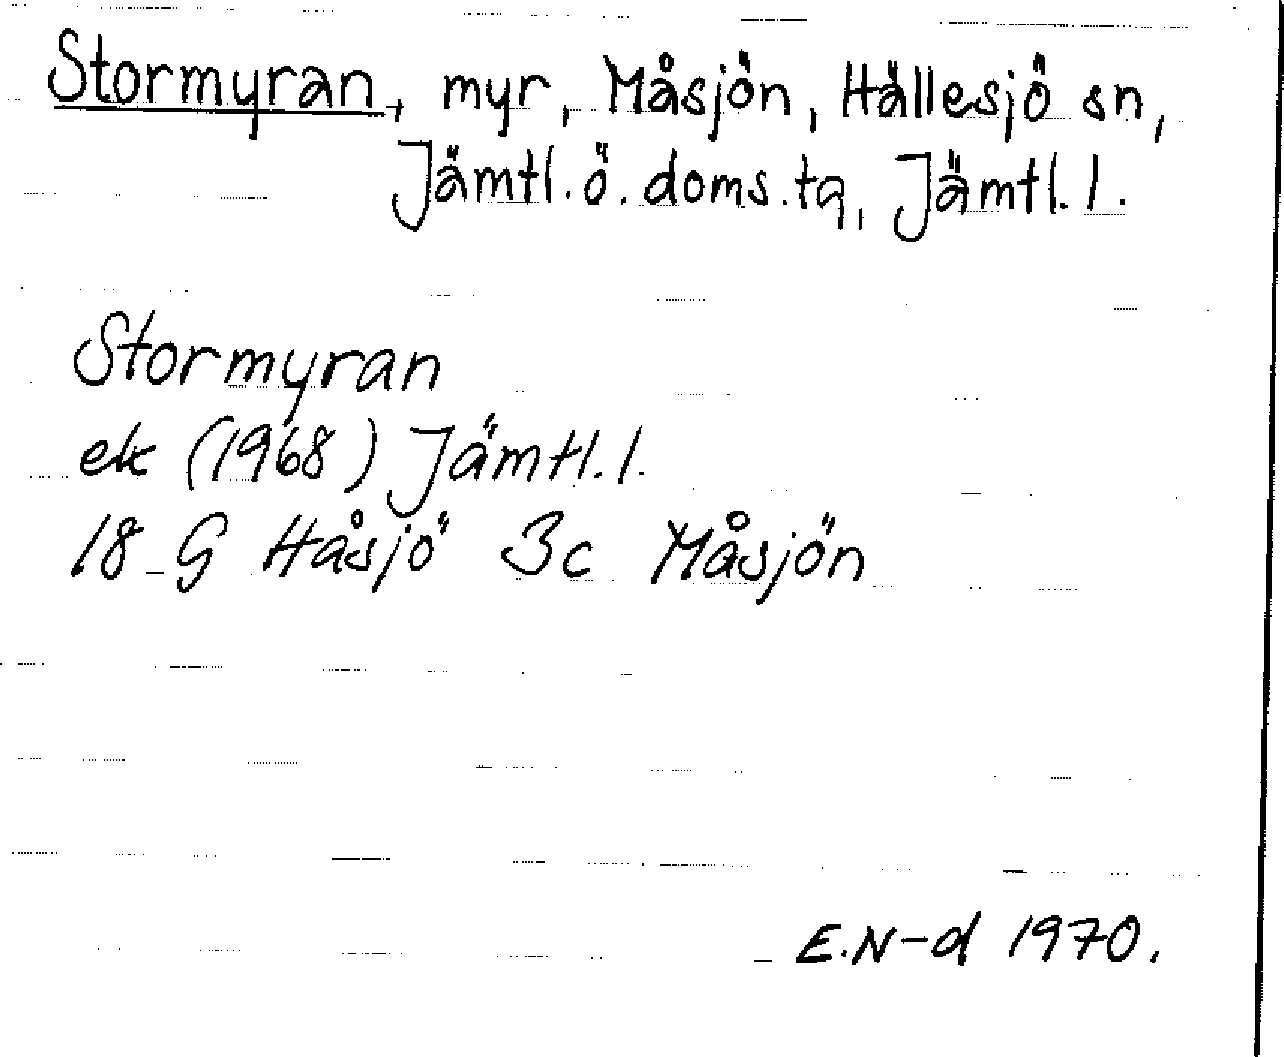 Stormyran, myr, Måsjön, Hällesjö sn,
Jämtl.ö.doms.tq, Jämtl.l.
Stormyran
ek (1968) Jämtl.l.
18 G Håsjö 3c Måsjön
E.N-d 1970.